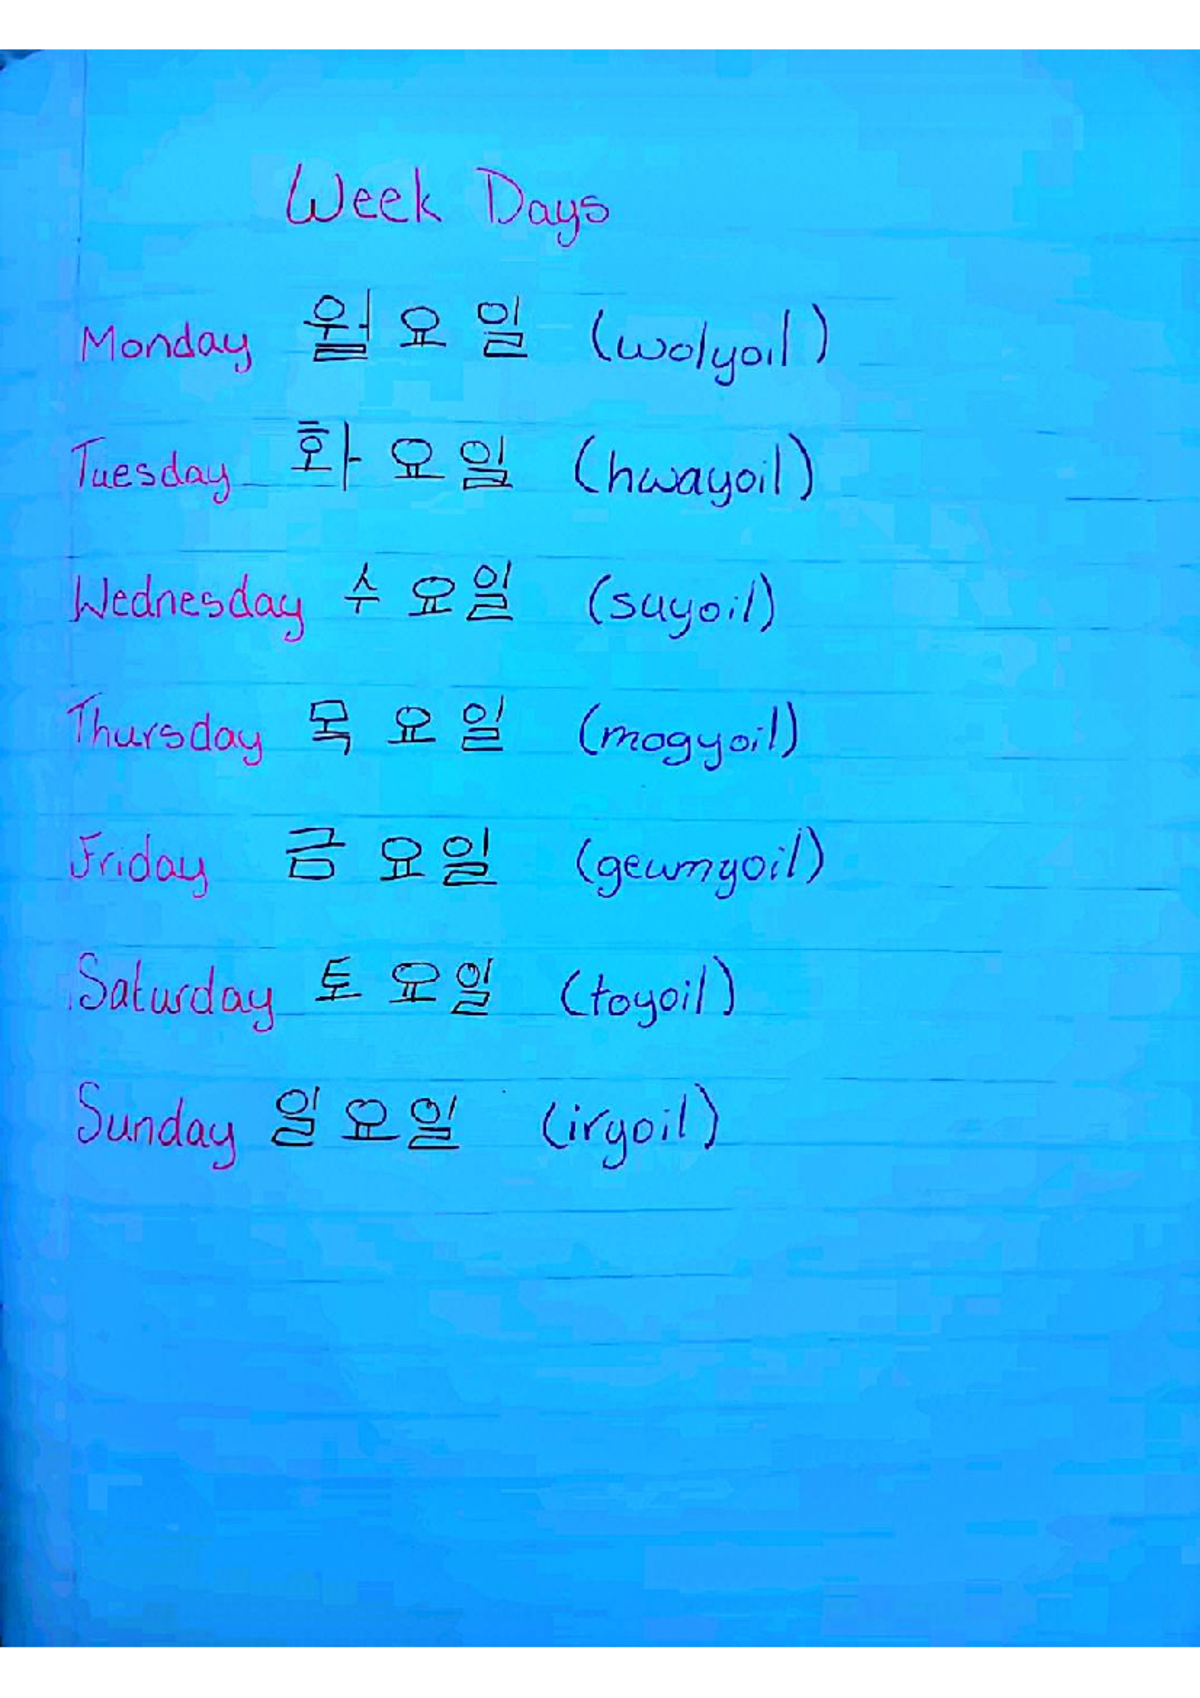 Week Days
Monday 월요일 (wolyoil)
Tuesday 화요일 (hwayoil)
Wednesday 수요일 (suyoil)
Thursday 목요일 (mogyoil)
Friday 금요일 (geumyoil)
Saturday 토요일 (toyoil)
Sunday 일요일 (iryoil)